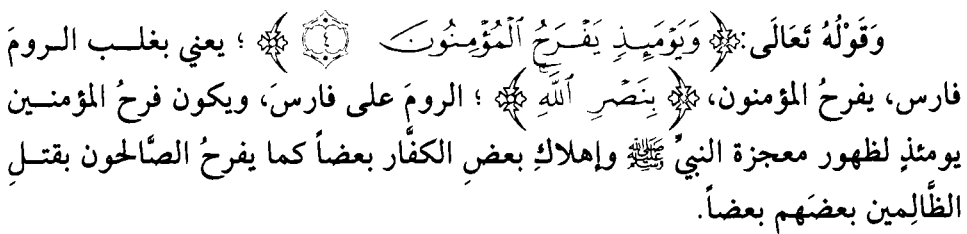 وَقَوْلُهُ تَعَالَى: ﴿وَيَوْمَئِذٍ يَفْرَحُ ٱلْمُؤْمِنُونَ ٤﴾ ؛ يعني بغلب الرومَ
فارس، يفرحُ المؤمنون، ﴿بِنَصْرِ ٱللَّهِ﴾ ؛ الرومَ على فارسَ، ويكون فرحُ المؤمنين
يومئذٍ لظهور معجزة النبيِّ ﷺ وإهلاكِ بعضِ الكفَّار بعضاً كما يفرحُ الصَّالحون بقتلِ
الظَّالِمين بعضَهم بعضاً.